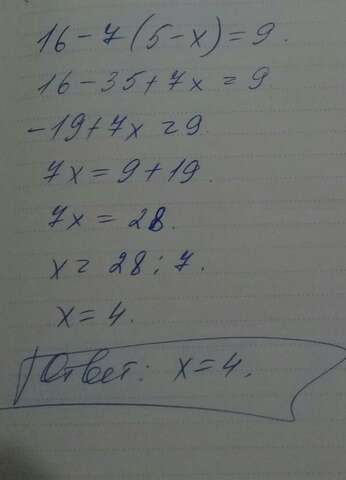 16 - 7 (5 - x) = 9.
16 - 35 + 7x = 9
-19 + 7x = 9.
7x = 9 + 19.
7x = 28.
x = 28 : 7.
x = 4.
Ответ: x = 4.